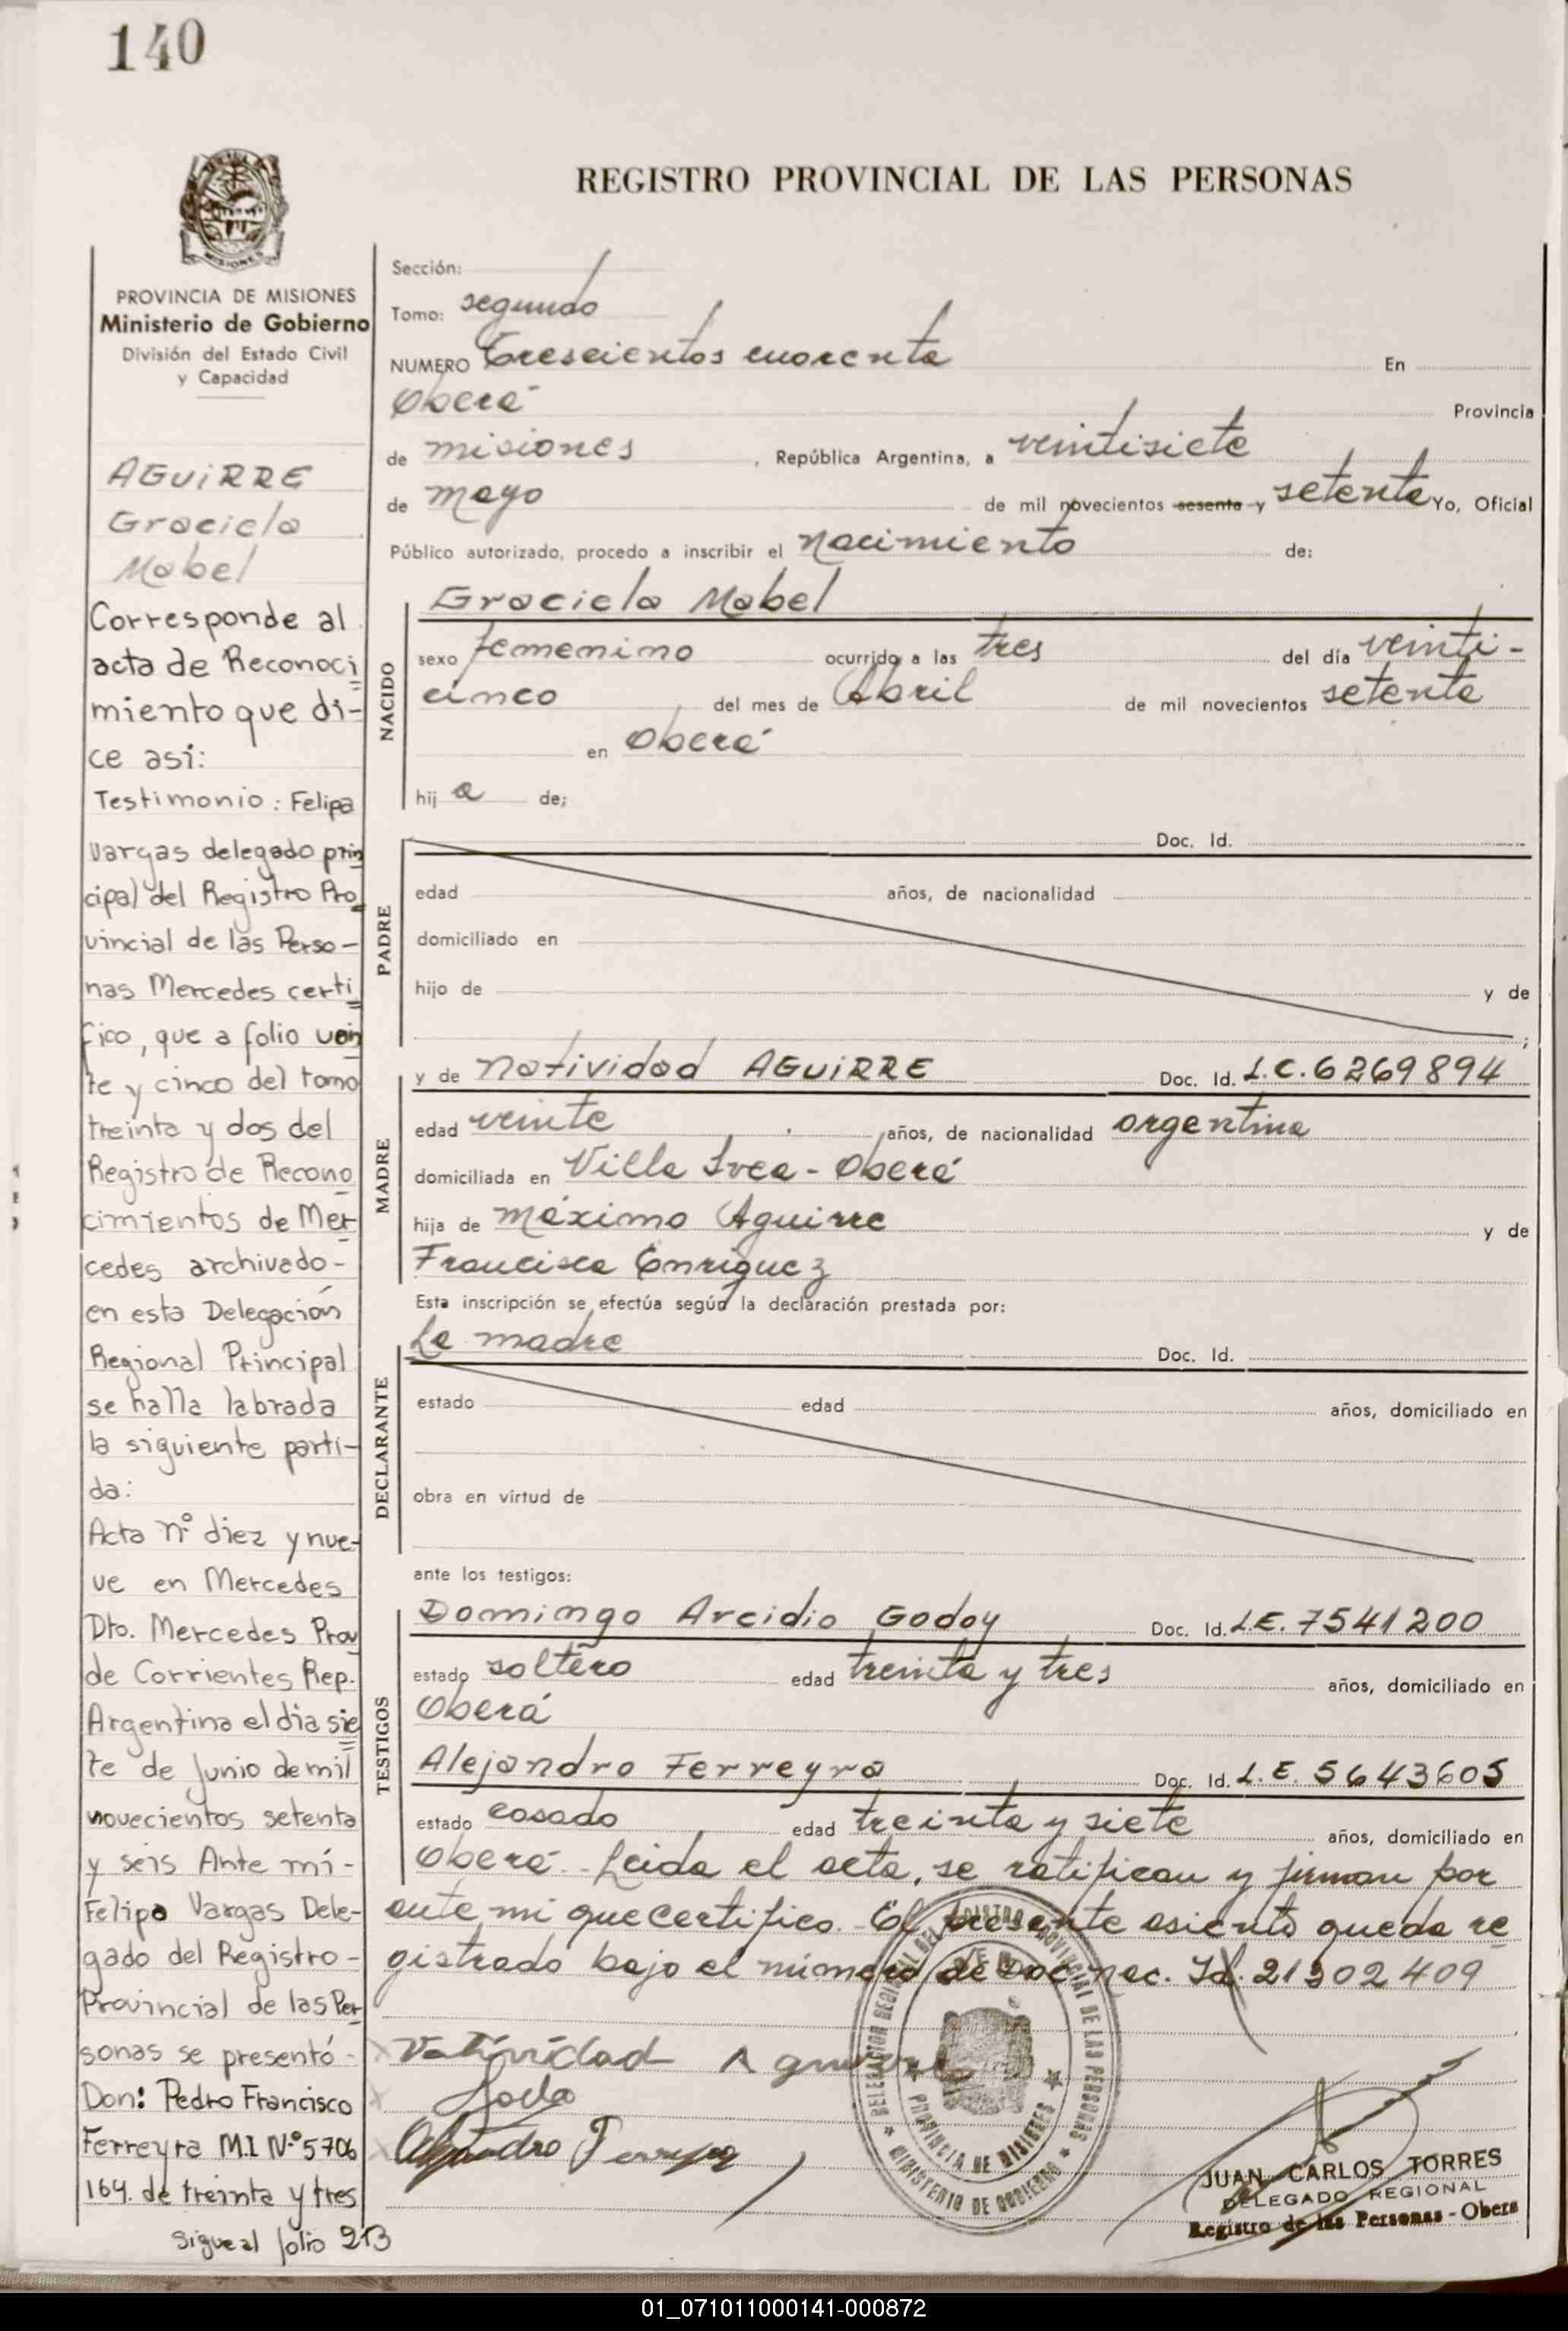 140
REGISTRO PROVINCIAL DE LAS PERSONAS
MISIONES
PROVINCIA DE MISIONES
Ministerio de Gobierno
División del Estado Civil
y Capacidad
AGUIRRE
Graciela
Mabel
Corresponde al
acta de Reconoci
miento que di-
ce así:
Testimonio: Felipa
Vargas delegado prin
cipal del Registro Pro
vincial de las Perso-
nas Mercedes certi
fico, que a folio vein
te y cinco del tomo
treinta y dos del
Registro de Recono
cimientos de Mer
cedes archivado-
en esta Delegación
Regional Principal
se halla labrada
la siguiente parti-
da:
Acta nº diez y nue-
ve en Mercedes
Dto. Mercedes Prov
de Corrientes Rep.
Argentina el dia sie
te de Junio de mil
novecientos setenta
y seis Ante mí-
Felipa Vargas Dele-
gado del Registro-
Provincial de las Per
sonas se presentó-
Don: Pedro Francisco
Ferreyra M.I Nº 5706
164. de treinta y tres
sigue al folio 213
Sección:
Tomo: segundo
NUMERO Trescientos cuarenta En
Oberá Provincia
de misiones, República Argentina, a veintisiete
de mayo de mil novecientos sesenta y setenta Yo, Oficial
Público autorizado, procedo a inscribir el nacimiento de:
NACIDO
Graciela Mabel
sexo femenino ocurrido a las tres del día veinti-
cinco del mes de Abril de mil novecientos setenta
en Oberá
hij a de;
PADRE
Doc. Id.
edad años, de nacionalidad
domiciliado en
hijo de y de
;
MADRE
y de Natividad AGUIRRE Doc. Id. L.C. 6269894
edad veinte años, de nacionalidad argentina
domiciliada en Villa Svea - Oberá
hija de Máximo Aguirre y de
Francisca Enriquez
Esta inscripción se efectúa según la declaración prestada por:
DECLARANTE
La madre Doc. Id.
estado edad años, domiciliado en
obra en virtud de
ante los testigos:
TESTIGOS
Domingo Arcidio Godoy Doc. Id. L.E. 7541200
estado soltero edad treinta y tres años, domiciliado en
Oberá
Alejandro Ferreyra Doc. Id. L.E. 5643605
estado casado edad treinta y siete años, domiciliado en
Oberá. Leida el acta, se ratifican y firman por
ante mi que certifico. El presente asiento queda re
gistrado bajo el número de Doc. nac. Id. 21302409
Natividad Aguirre
Alejandro Ferreyra
DELEGACION REGIONAL DEL REGISTRO PROVINCIAL DE LAS PERSONAS
OBERA
PROVINCIA DE MISIONES
MINISTERIO DE GOBIERNO
JUAN CARLOS TORRES
DELEGADO REGIONAL
Registro de las Personas - Obera
01_071011000141-000872